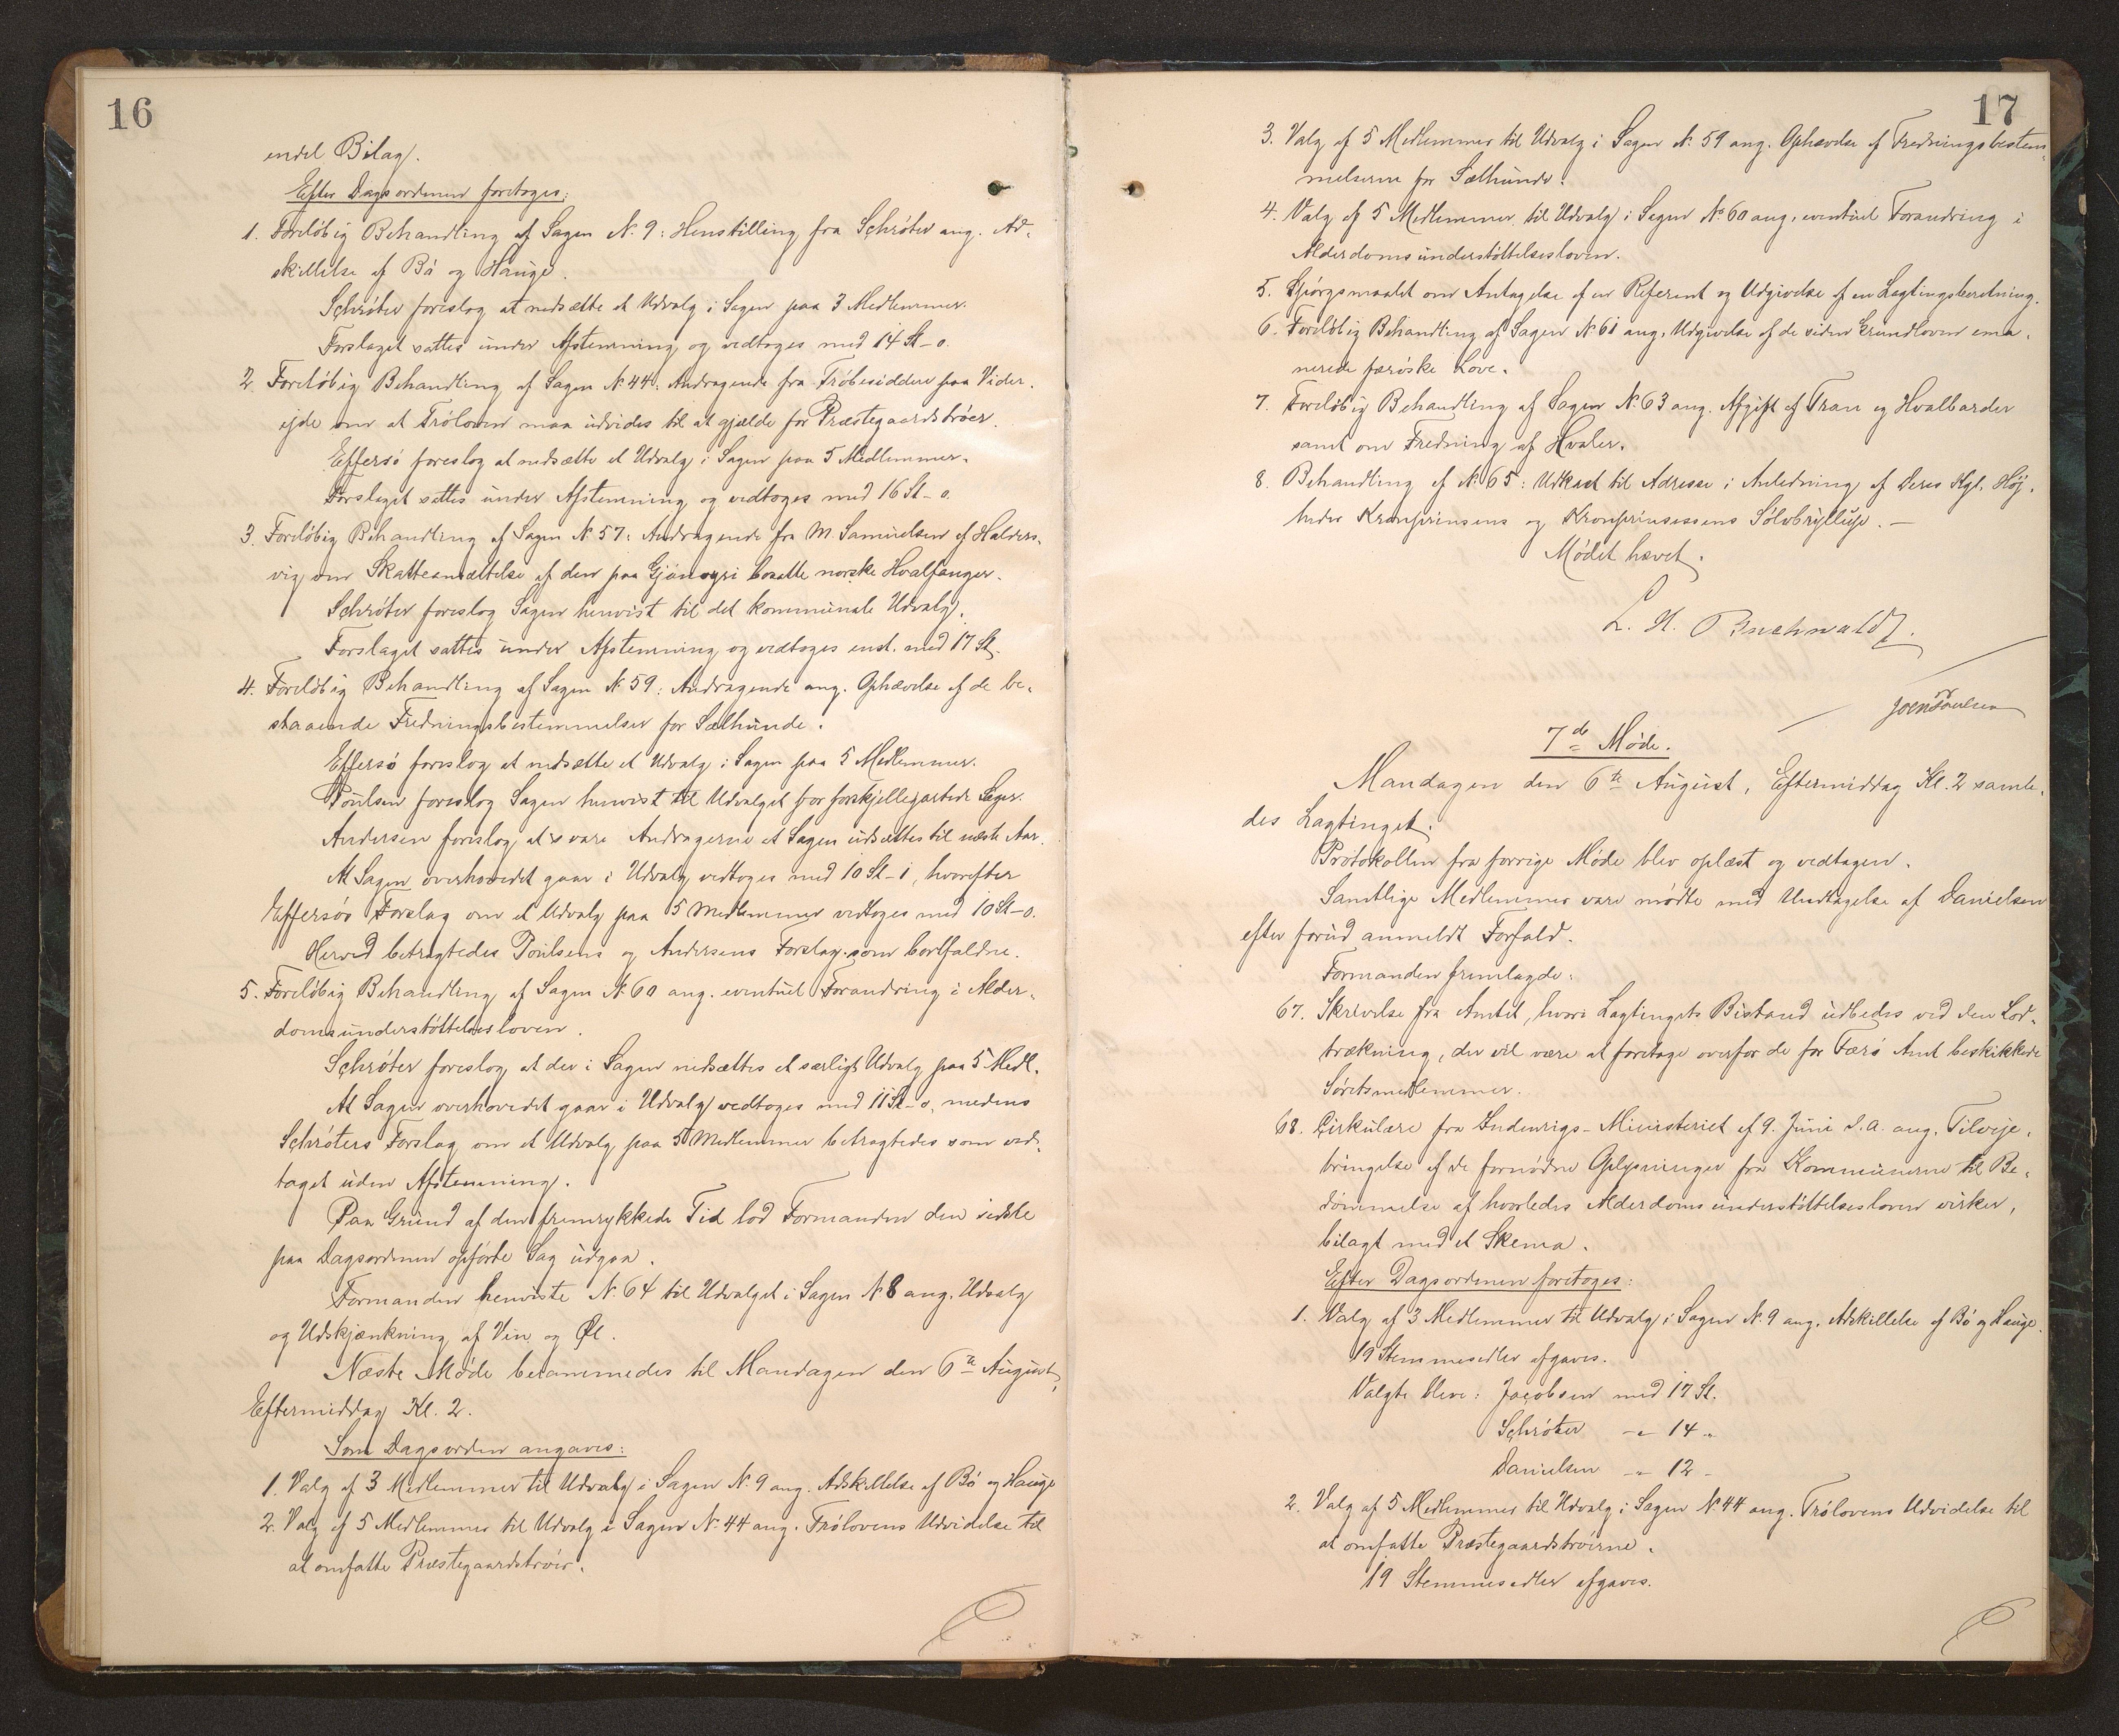 16
endel Bilag.
Efter Dagsordenen foretoges:
1. Foreløbig Behandling af Sagen N. 9: Henstilling fra Schrøter ang. Ad-
skillelse af Bø og Hauge.
Schrøter foreslog at nedsætte et Udvalg i Sagen paa 3 Medlemmer.
Forslaget sattes under Afstemning og vedtoges med 14 St – 0.
2. Foreløbig Behandling af Sagen N. 44: Andragende fra Trøbesiddere paa Vider-
ejde om at Trøloven maa udvides til at gjælde for Præstegaardstrøer.
Effersø foreslog at nedsætte et Udvalg i Sagen paa 5 Medlemmer.
Forslaget sattes under Afstemning og vedtoges med 16 St – 0.
3. Foreløbig Behandling af Sagen N. 57: Andragende fra M. Samuelsen af Halders-
vig om Skatteansættelse af den paa Gjánoyri bosatte norske Hvalfanger.
Schrøter foreslog Sagen henvist til det kommunale Udvalg.
Forslaget sattes under Afstemning og vedtoges enst. med 17 St.
4. Foreløbig Behandling af Sagen N. 59: Andragende ang. Ophævelse af de be-
staaende Fredningsbestemmelser for Sælhunde.
Effersø foreslog at nedsætte et Udvalg i Sagen paa 5 Medlemmer.
Poulsen foreslog Sagen henvist til Udvalget for forskjelligartede Sager.
Andersen foreslog at svare Andragerne at Sagen udsættes til næste Aar.
At Sagen overhovedet gaar i Udvalg vedtoges med 10 St – 1, hvorefter
Effersøs Forslag om et Udvalg paa 5 Medlemmer vedtoges med 10 St – 0.
Herved betragtedes Poulsens og Andersens Forslag som bortfaldne.
5. Foreløbig Behandling af Sagen N. 60 ang. eventuel Forandring i Alder-
domsunderstøttelsesloven.
Schrøter foreslog at der i Sagen nedsættes et særligt Udvalg paa 5 Medl.
At Sagen overhovedet gaar i Udvalg vedtoges med 11 St – 0, medens
Schrøters Forslag om et Udvalg paa 5 Medlemmer betragtedes som ved-
taget uden Afstemning.
Paa Grund af den fremrykkede Tid lod Formanden den sidste
paa Dagsordenen opførte Sag udgaa.
Formanden henviste N. 64 til Udvalget i Sagen N. 8 ang. Udsalg
og Udskjænkning af Vin og Øl.
Næste Møde berammedes til Mandagen den 6te August,
Eftermiddag Kl. 2.
Som Dagsorden angaves:
1. Valg af 3 Medlemmer til Udvalg i Sagen N. 9 ang. Adskillelse af Bø og Hauge
2. Valg af 5 Medlemmer til Udvalg i Sagen N. 44 ang. Trølovens Udvidelse til
at omfatte Præstegaardstrøer.
17
3. Valg af 5 Medlemmer til Udvalg i Sagen N. 59 ang. Ophævelse af Fredningsbestem-
melserne for Sælhunde.
4. Valg af 5 Medlemmer til Udvalg i Sagen No 60 ang. eventuel Forandring i
Alderdomsunderstøttelsesloven.
5. Spørgsmaalet om Antagelse af en Referent og Udgivelse af en Lagtingsberetning.
6. Foreløbig Behandling af Sagen N. 61 ang. Udgivelse af de siden Grundloven ema-
nerede færøske Love.
7. Foreløbig Behandling af Sagen N. 63 ang. Afgift af Tran og Hvalbarder
samt om Fredning af Hvaler.
8. Behandling af N. 65: Udkast til Adresse i Anledning af Deres Kgl. Høj-
heder Kronprinsens og Kronprinsessens Sølvbryllup. –
Mødet hævet.
L. H. Buchwaldt.
Joen Poulsen
7de Møde.
Mandagen den 6te August, Eftermiddag Kl. 2 samle-
des Lagtinget.
Protokollen fra forrige Møde blev oplæst og vedtagen.
Samtlige Medlemmer vare mødte med Undtagelse af Danielsen
efter forud anmeldt Forfald.
Formanden fremlagde:
67. Skrivelse fra Amtet, hvori Lagtingets Bistand udbedes ved den Lod-
trækning, der vil være at foretage overfor de for Færø Amt beskikkede
Søretsmedlemmer.
68. Cirkulære fra Indenrigs-Ministeriet af 9. Juni d. A. ang. Tilveje-
bringelse af de fornødne Oplysninger fra Kommunerne til Be-
dømmelse af hvorledes Alderdomsunderstøttelsesloven virker,
bilagt med et Skema.
Efter Dagsordenen foretoges:
1. Valg af 3 Medlemmer til Udvalg i Sagen N. 9 ang. Adskillelse af Bø og Hauge.
19 Stemmesedler afgaves.
Valgte bleve: Jacobsen med 17 St.
Schrøter –„– 14 „
Danielsen –„– 12 –
2. Valg af 5 Medlemmer til Udvalg i Sagen N. 44 ang. Trølovens Udvidelse til
at omfatte Præstegaardstrøerne.
19 Stemmesedler afgaves.